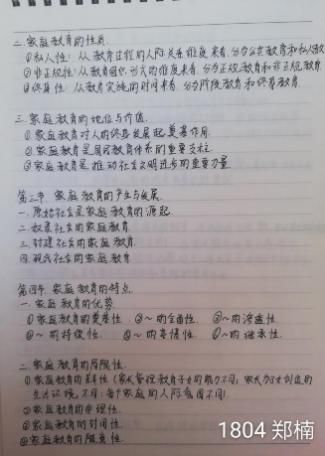 二.家庭教育的性质
①私人性:从教育过程的人际关系维度来看,分为公共教育和私人教
②非正规性:从教育组织形式的维度来看,分为正规教育和非正规教育.
③终身性:从教育实施的时间来看,分为阶段教育和终身教育.
三.家庭教育的地位与价值.
①家庭教育对人的终身发展起奠基作用.
②家庭教育是国民教育体系的重要支柱.
③家庭教育是推动社会文明进步的重要力量
第三节 家庭教育的产生与发展.
一.原始社会是家庭教育的源起
二.奴隶社会的家庭教育
三.封建社会的家庭教育
四.现代社会的家庭教育
第四节 家庭教育的特点.
一.家庭教育的优势
①家庭教育的奠基性. ②~的全面性. ③~的渗透性
④~的持续性. ⑤~的亲情性. ⑥~的继承性.
二.家庭教育的局限性.
①家庭教育的差异性(家长管理教育子女的能力不同;家长为子女创造的
生活环境不同;每个家庭的人际氛围不同).
②家庭教育的非理性.
③家庭教育的封闭性.
④家庭教育的随意性
1804 郑楠